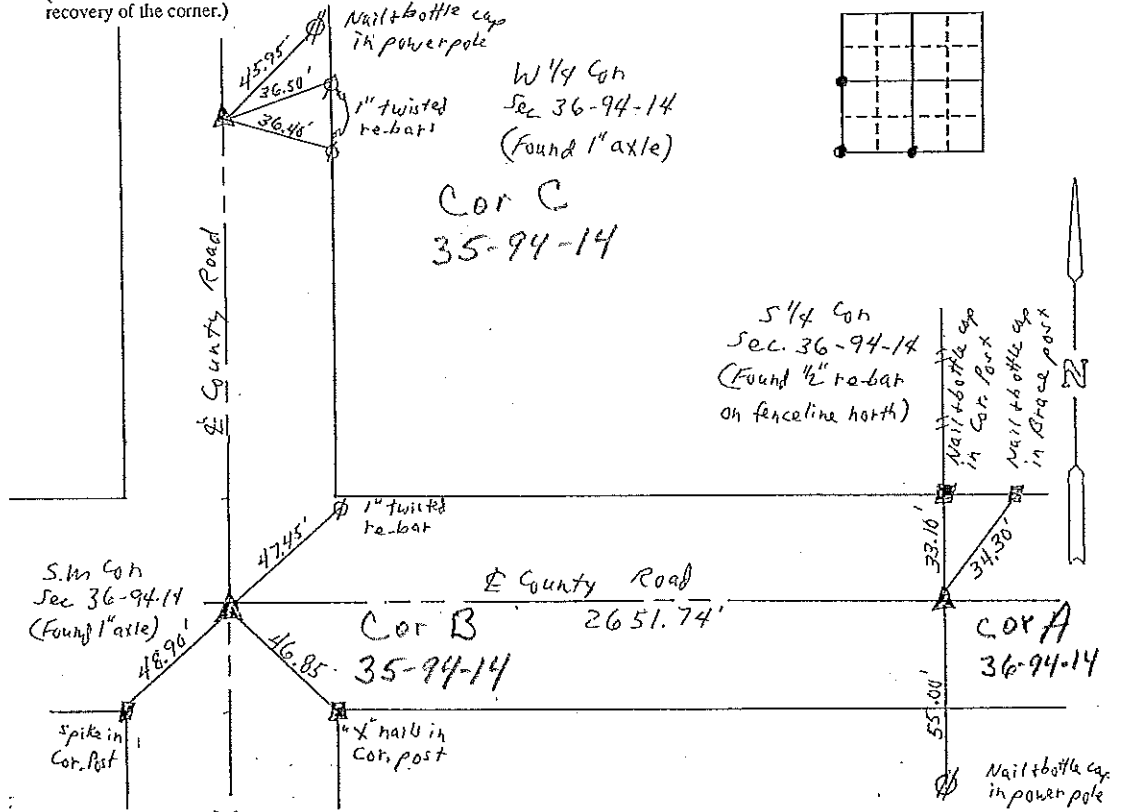 recovery of the corner.)
Nail+bottle cap
in power pole
45.95'
36.50'
36.40'
1" twisted
re-bars
W 1/4 Cor
Sec 36-94-14
(Found 1" axle)
Cor C
35-94-14
℄ County Road
S 1/4 Cor
Sec. 36-94-14
(Found 1/2" re-bar
on fenceline north)
Nail+bottle cap
in Cor. Post
Nail+bottle cap
in Brace post
N
1" twisted
re-bar
47.45'
33.10'
34.30'
S.W Cor
Sec 36-94-14
(Found 1" axle)
℄ County Road
2651.74'
Cor B
35-94-14
Cor A
36-94-14
48.90'
46.85
55.00'
spike in
Cor. Post
"X" nails in
Cor. post
Nail+bottle cap
in power pole